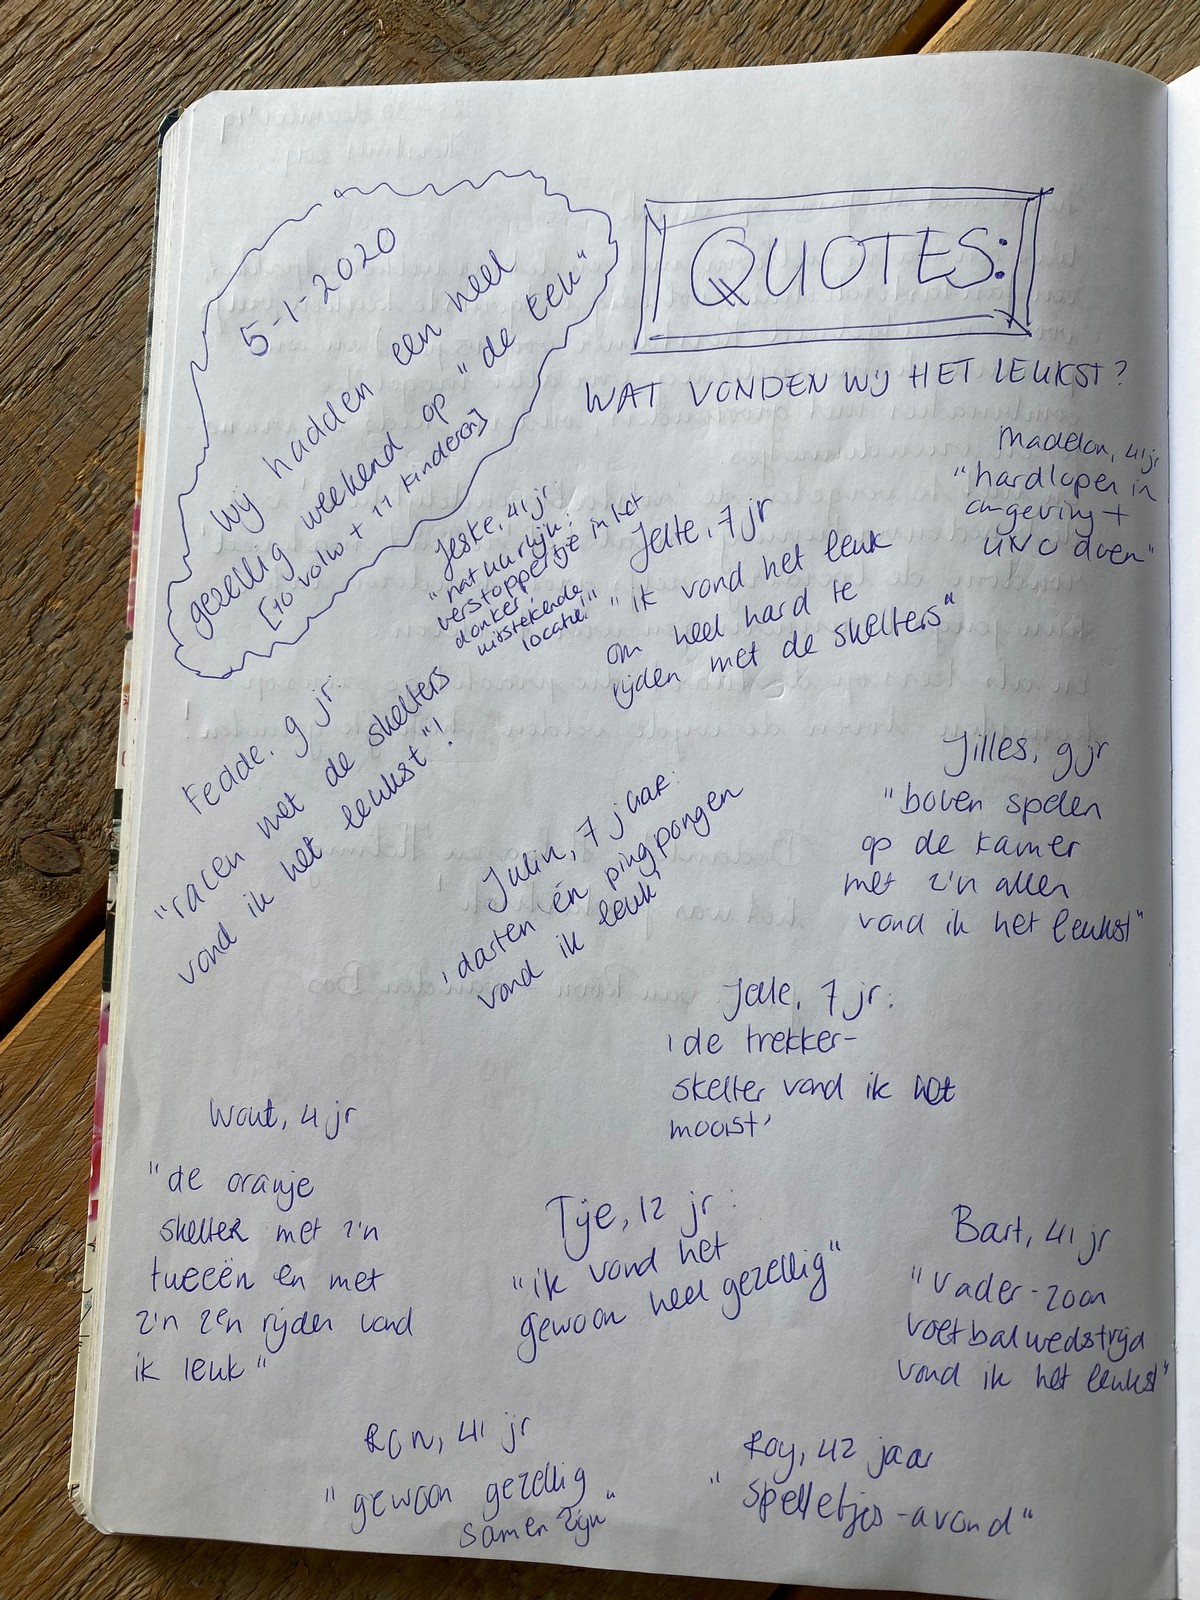 5-1-2020
Wij hadden een heel
gezellig weekend op "de Eek"
[10 volw + 11 kinderen]
QUOTES:
WAT VONDEN WIJ HET LEUKST?
Madelon, 41 jr
"hardlopen in
omgeving +
UNO doen"
Jeske, 41 jr:
"natuurlijk:
verstoppertje in het
donker!
uitstekende
locatie!"
Jelte, 7 jr
"ik vond het leuk
om heel hard te
rijden met de skelters"
Fedde, 9 jr:
"racen met de skelters
vond ik het leukst"!
Jilles, 9 jr
"boven spelen
op de kamer
met z'n allen
vond ik het leukst"
Julin, 7 jaar:
'darten én pingpongen
vond ik leuk'
Jelle, 7 jr:
'de trekker-
skelter vond ik het
mooist'
Wout, 4 jr
"de oranje
skelter met z'n
tweeën en met
z'n zen rijden vond
ik leuk"
Tije, 12 jr:
"ik vond het
gewoon heel gezellig"
Bart, 41 jr
"Vader-zoon
voetbalwedstrijd
vond ik het leukst"
Ron, 41 jr
"gewoon gezellig
samen zijn"
Roy, 42 jaar
"spelletjes-avond"